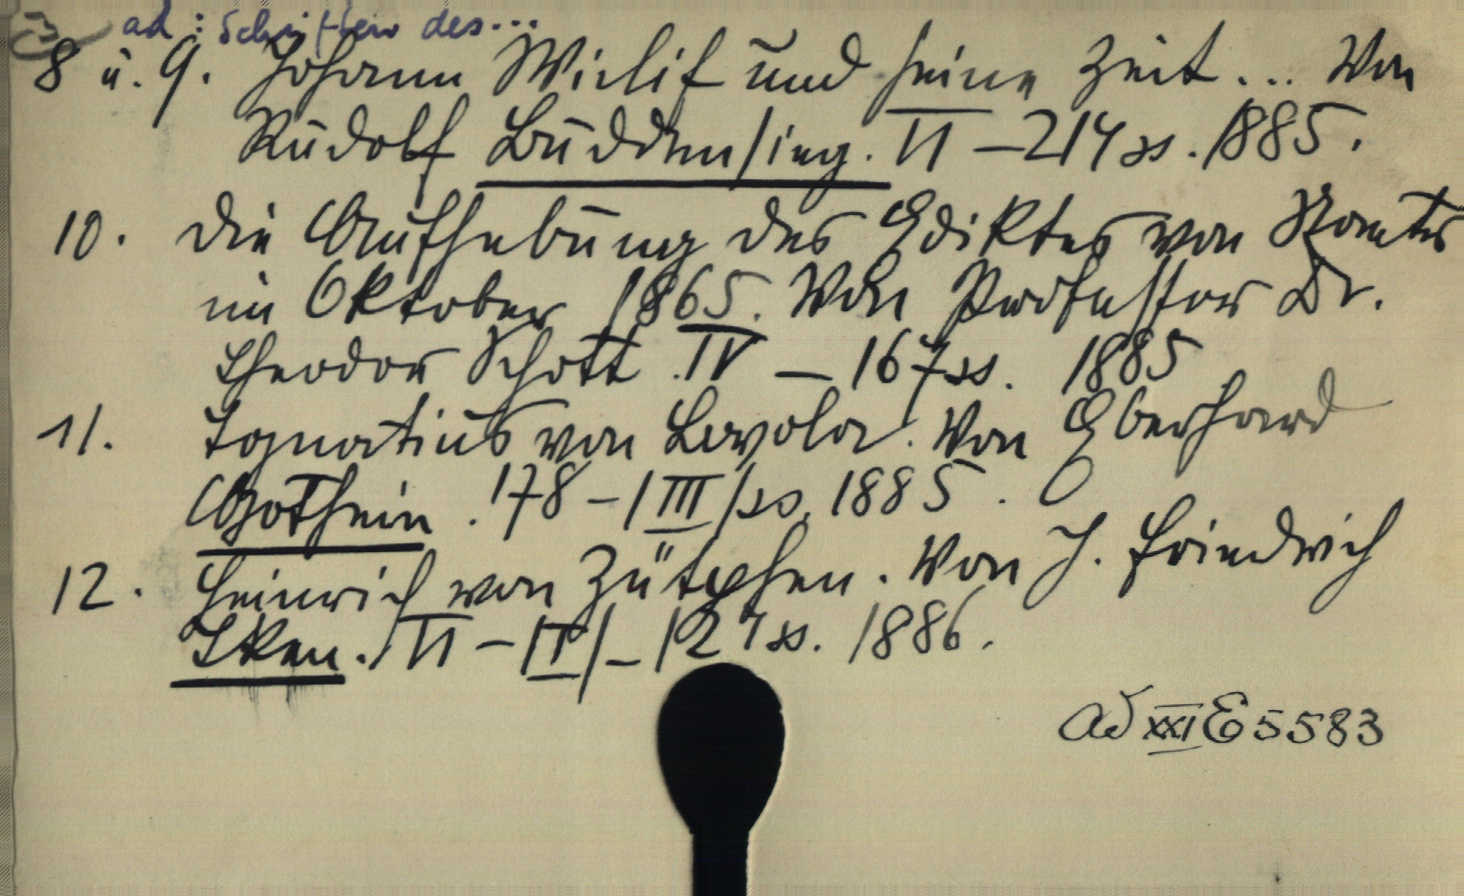 ad: Schriften des...
8 u. 9. Johann Wiclif und seine Zeit... Von
Rudolf Buddensieg. VI – 214 ss. 1885.
10. Die Aufhebung des Ediktes von Nantes
im Oktober 1865. Von Professor Dr.
Theodor Schott. IV – 167 ss. 1885
11. Ignatius von Loyola. Von Eberhard
Gothein. 178 – /III/ ss. 1885.
12. Heinrich von Zütphen. Von J. Friedrich
Iken. /VI – /II/ – 124 ss. 1886.
ad XXI E 5583